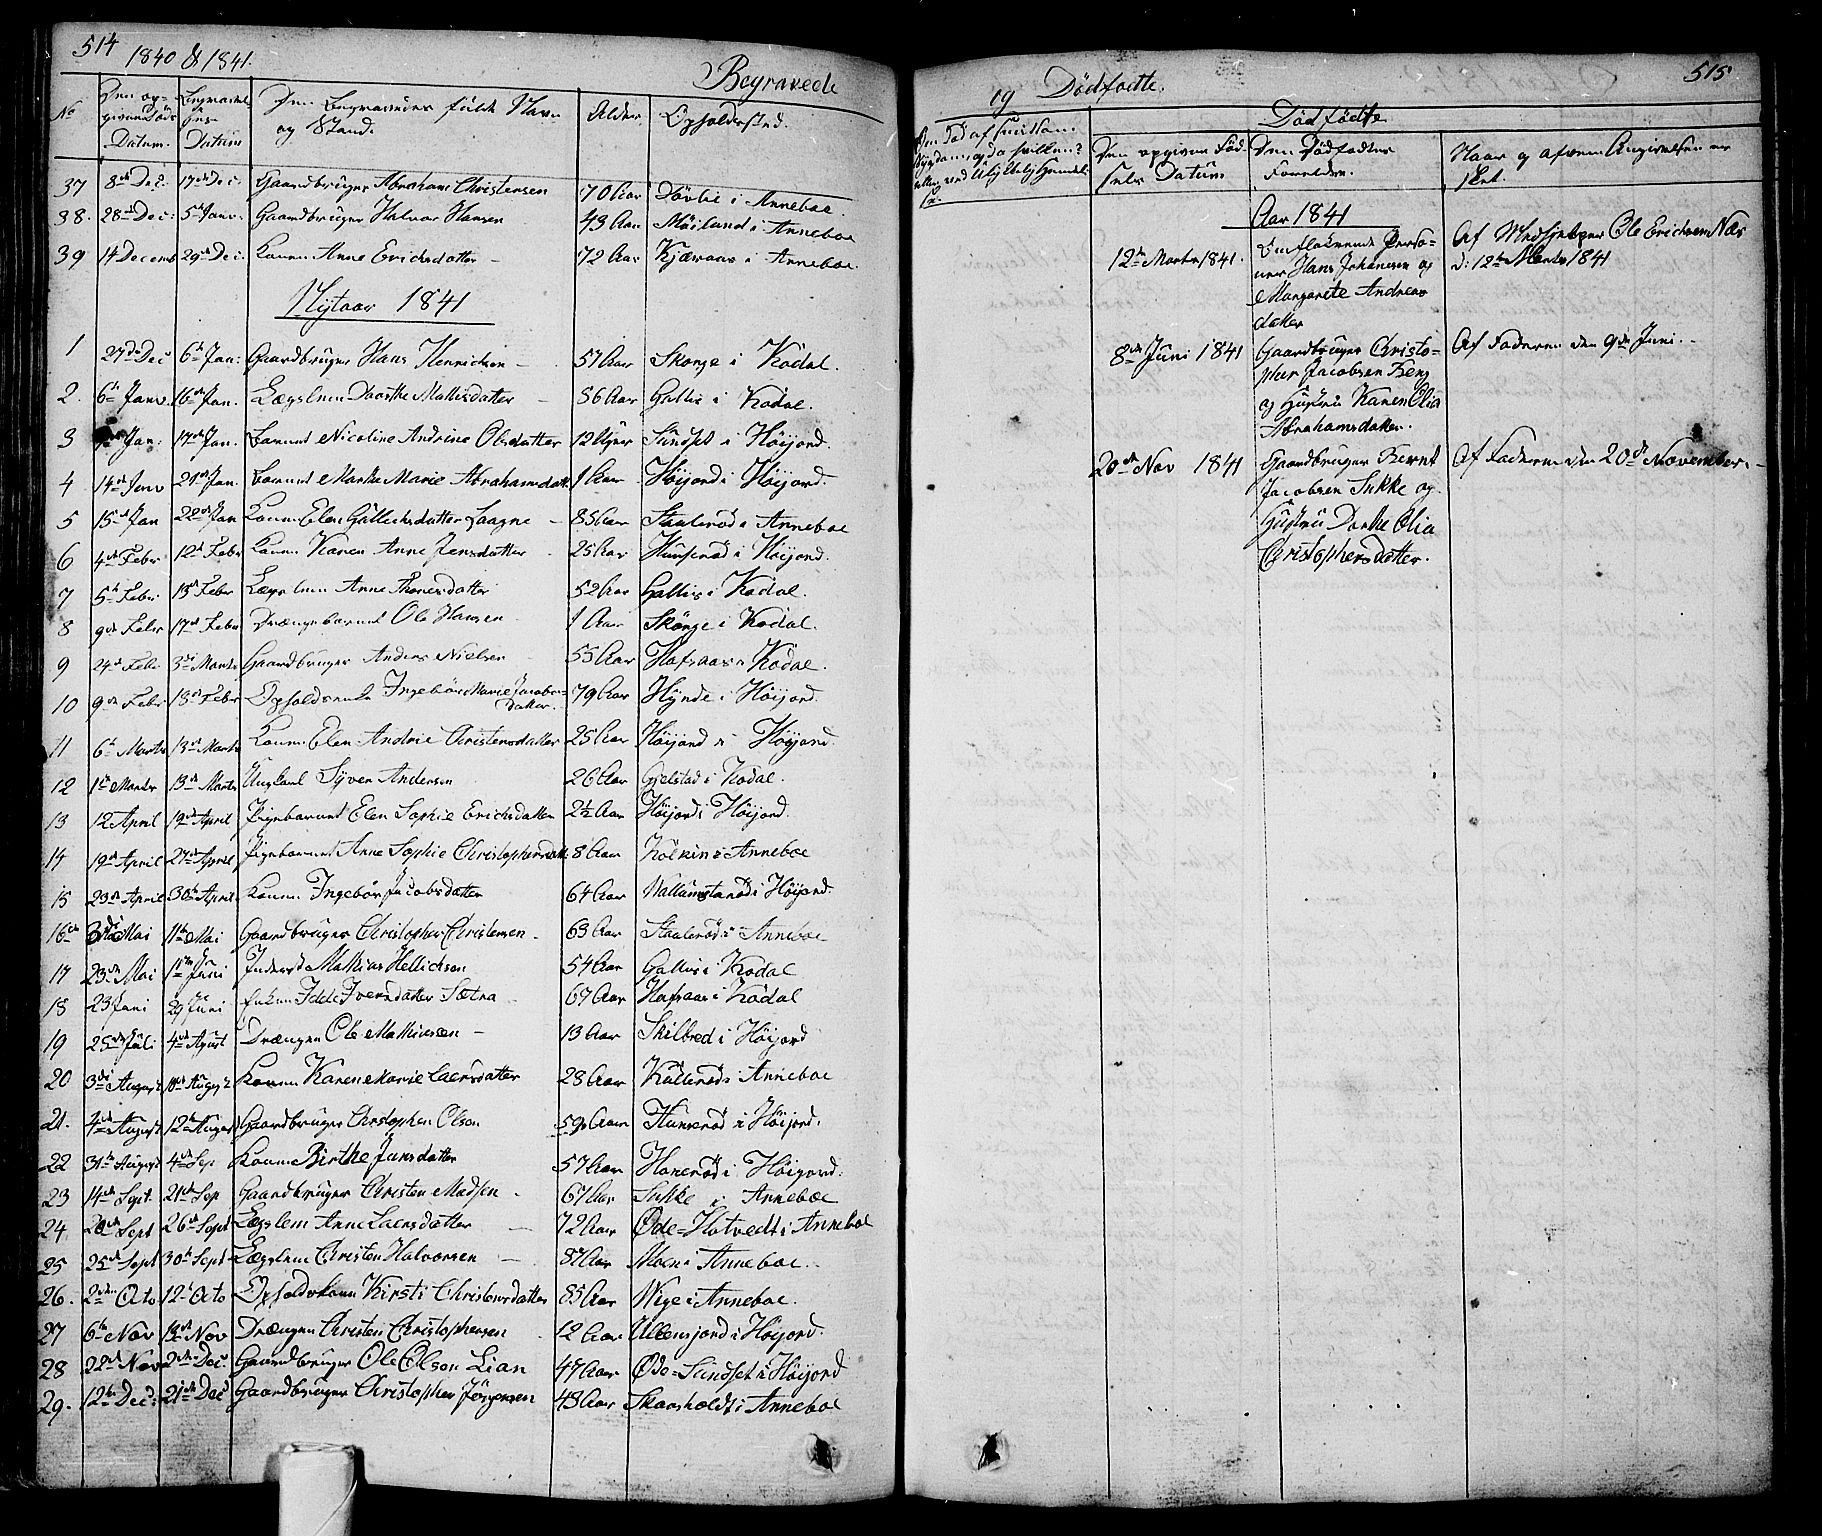 514
1840 & 1841.
Begravede
No
Den op-
givne Døds
Datum.
Begravel
ses
Datum
Den Begravedes fulde Navn
og Stand.
Alder.
Opholdssted.
37 8de Dec: 17de Dec: Gaardbruger Abraham Christensen 70 Aar Døvle i Anneboe.
38. 28de Dec: 5te Janv: Gaardbruger Halvor Hansen 43 Aar Møiland i Anneboe
39 14 Decemb 29de Dec: Konen Anne Erichsdatter – 72 Aar Kjæraas i Anneboe.
Nytaar 1841
1 27de Dec 6te Jan: Gaardbruger Hans Henrichsen – 57 Aar Skorge i Kodal.
2. 6te Janv. 16de Jan. Lægslem Dorthe Mathisdatter 86 Aar Gallis i Kodal.
3 Jan: 17de Jan. Barnet Nicoline Andrine Olsdatter 12 Uger Sundset i Høijord.
4 14de Janv 21de Jan. Barnet Marthe Marie Abrahamsdatt. 1 Aar Høijord i Høijord.
5 15de Jan 22de Jan Konen Elen Gulliksdatter Laagne – 85 Aar Staalerød i Anneboe
6 4de Febr 12te Febr Konen Karen Anne Jensdatter 25 Aar Hunserød i Høijord.
7 5te Febr 13de Febr Lægslem Anne Thoresdatter 52 Aar Gallis i Kodal.
8 9de Febr 17de Febr Drængebarnet Ole Hansen 1 Aar Skorge i Kodal.
9 24de Febr 3die Marts Gaardbruger Anders Nielsen 55 Aar Hafsaas i Kodal.
10 9de Febr 18de Febr Opholdsenke Ingebör Marie Jacobs-
datter. 79 Aar Hynde i Høijord.
11 6te Marts 13de Marts Konen Elen Andrie Christensdatter 25 Aar Høijord i Høijord.
12 1ste Marts 13de Marts Ungkarl Syver Andersen 26 Aar Gjelstad i Kodal.
13 12 April 19de April Pigebarnet Elen Sophie Erichsdatter 2½ Aar Høijord i Høijord.
14 19de April 27de April Pigebarnet Anne Sophie Christophersdatt. 8 Aar Kolkin i Anneboe
15 23de April 30te April Konen Ingebör Jacobsdatter 64 Aar Vallumstarød i Høijord.
16de 3die Mai 11te Mai Gaardbruger Christopher Christensen – 63 Aar Staalerød i Anneboe
17 23de Mai 1ste Juni Inderst Mathias Hellichsen 54 Aar Gallis i Kodal
18 23 Juni 29 Juni Enken Idde Iversdatter Sætra – 67 Aar Hafsaas i Kodal
19 25de Juli 4de Agust Drængen Ole Mathiasen – 13 Aar Skilbred i Høijord
20 3die August 10de August Konen Karen Marie Laersdatter 28 Aar Kullerød i Anneboe
21. 4de August 12te August Gaardbruger Christopher Olsen 59 Aar Hunserød i Høijord.
22 31te August 4de Sep Konen Birthe Jansdatter 57 Aar Hanerød i Høigord.
23 14de Sept. 21de Sep Gaardbruger Christen Madsen – 67 Aar Sukke i Anneboe
24. 20de Sept 26de Sept Lægslem Anne Laersdatter – 72 Aar Øde-Hotvedt i Anneboe
25 25de Sept 30te Sept Lægslem Christen Halvorsen – 87 Aar Moen i Anneboe.
26. 2den Octo 12te Octo Opholdskone Kirsti Christensdatter 85 Aar Wige i Anneboe.
27 6te Nov 13de Nov Drængen Christen Christophersen 12 Aar Ullensjord i Høijord.
28 22de Nov 2den Dec Gaardbruger Ole Olson Lian 47 Aar Øde-Sundset i Høijord
29. 12te Dec: 21de Dec Gaardbruger Christopher Jörgensen 48 Aar Skaarholdt i Anneboe
515
og Dødfødte.
Om Død af smitsom
Sygdom og da hvilken?
eller ved ulykkelig Hændel
se.
Dødfødte
Den opgivne Fød-
sels Datum
Den Dødfødtes
Forældre.
Naar og af hvem Angivelsen er
skeet.
Aar 1841
12te Marts 1841. Omflakkende Perso-
ner Hans Johannesen og
Margarete Andreas
datter
Af Medhjelper Ole Erichsen Næs
d: 12te Marts 1841
8de Juni 1841 Gaardbruger Christo-
pher Jacobsen Berg
og Hustru Karen Olia
Abrahamsdatter.
Af Faderen den 9de Juni. –
20de Nov 1841 Gaardbruger Bernt
Jacobsen Sukke og
Hustru Dorthe Olia
Christophersdatter.
Af Faderen den 20de November. –